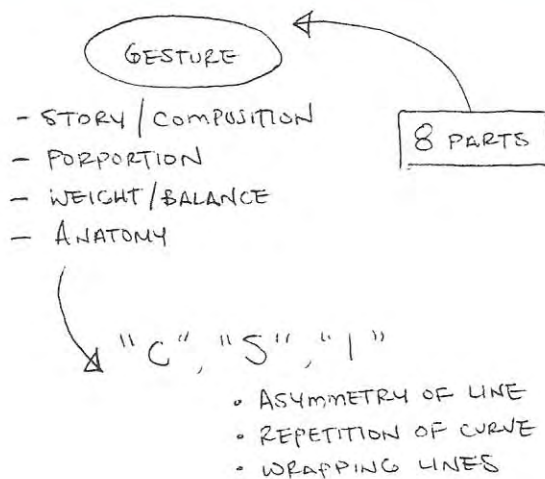 GESTURE
- STORY/COMPOSITION
- PORPORTION
- WEIGHT/BALANCE
- ANATOMY
8 PARTS
"C", "S", "I"
• ASYMMETRY OF LINE
• REPETITION OF CURVE
• WRAPPING LINES